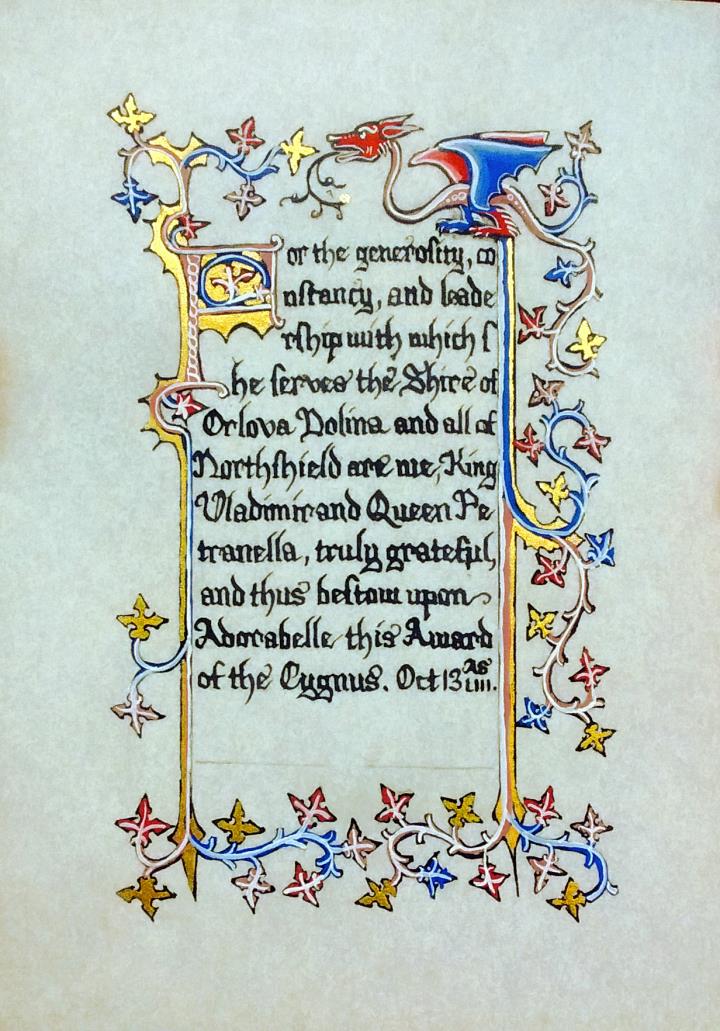 For the generosity, co
nstancy, and leade
rship with which s
he serves the Shire of
Orlova Dolina and all of
Northshield are we, King
Vladimir and Queen Pe
tranella, truly grateful,
and thus bestow upon
Adorabelle this Award
of the Cygnus. Oct 13 AS LIII.